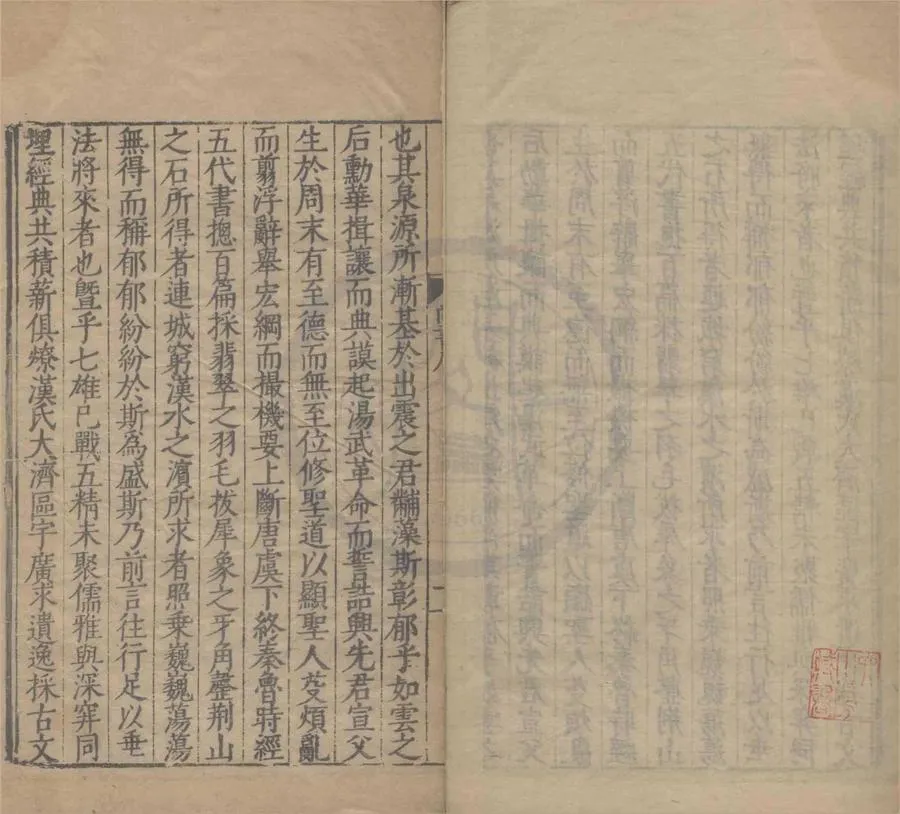 也其泉源所漸基於出震之君黼藻斯彰郁乎如雲之
后勳華揖讓而典謨起湯武革命而誓誥興先君宣父
生於周末有至德而無至位修聖道以顯聖人芟煩亂
而翦浮辭舉宏綱而撮機要上斷唐虞下終秦魯時經
五代書揔百篇採翡翠之羽毛拔犀象之牙角罄荆山
之石所得者連城窮漢水之濵所求者照乗巍巍蕩蕩
無得而稱郁郁紛紛於斯為盛斯乃前言往行足以垂
法將來者也曁乎七雄已戰五精未聚儒雅與深穽同
埋經典共積薪俱燎漢氏大濟區宇廣求遺逸採古文